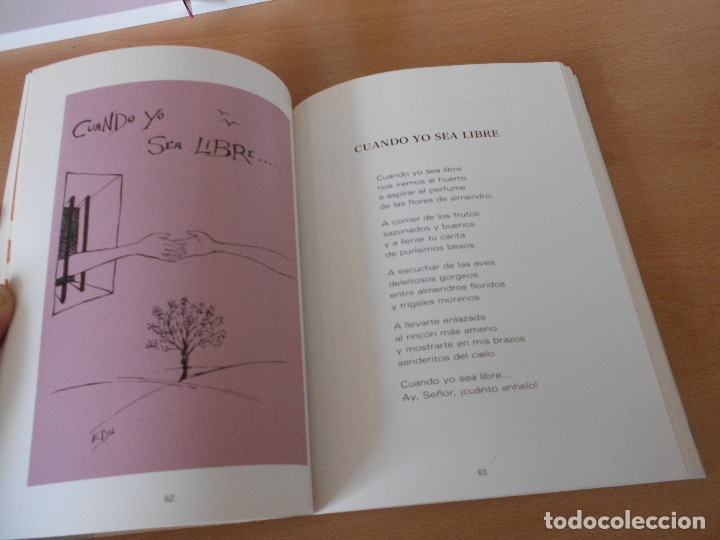 CUANDO YO
SEA LIBRE.....
EDU
62
CUANDO YO SEA LIBRE
Cuando yo sea libre
nos iremos al huerto
a aspirar el perfume
de las flores de almendro.
A comer de los frutos
sazonados y buenos
y a llenar tu carita
de purísimos besos.
A escuchar de las aves
deleitosos gorgeos
entre almendros floridos
y trigales morenos.
A llevarte enlazada
al rincón más ameno
y mostrarte en mis brazos
senderitos del cielo.
Cuando yo sea libre...
Ay, Señor, ¡cuánto anhelo!
63
todocoleccion.net